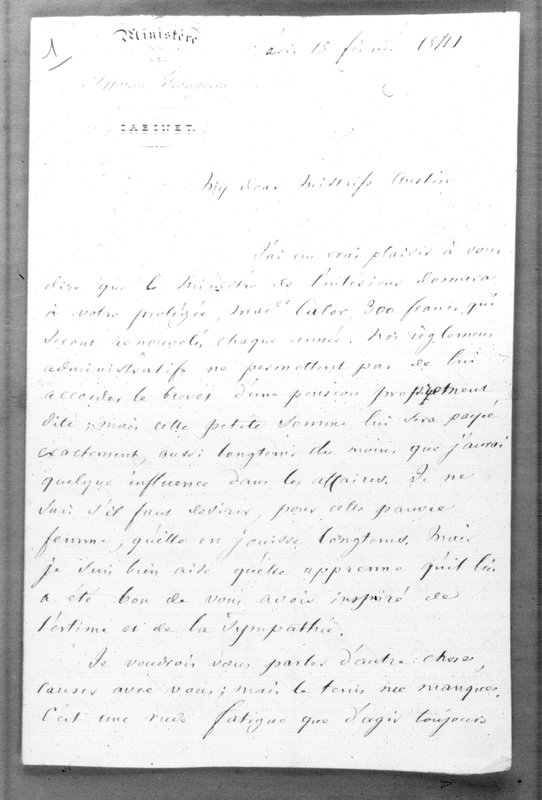 1
Ministère
des
Affaires Étrangères
CABINET.
Paris 15 février 1841
My dear Mistriss Austin
J'ai un vrai plaisir à vous
dire que le Ministre de l'intérieur donnera
à votre protégée, Mad^e 300 francs qui
seront renouvelés chaque année. Nos règlemens
administratifs ne permettent pas de lui
accorder le brevet d'une pension proprement
dite; mais cette petite somme lui sera payée
exactement, aussi longtems du moins que j'aurai
quelque influence dans les affaires. Je ne
sais s'il faut desirer, pour cette pauvre
femme, qu'elle en jouisse longtems. Mais
je suis bien aise qu'elle apprenne qu'il lui
a été bon de vous avoir inspiré de
l'estime et de la sympathie.
Je voudrois vous parler d'autre chose,
causer avec vous; mais le tems me manque.
C'est une rude fatigue que d'agir toujours